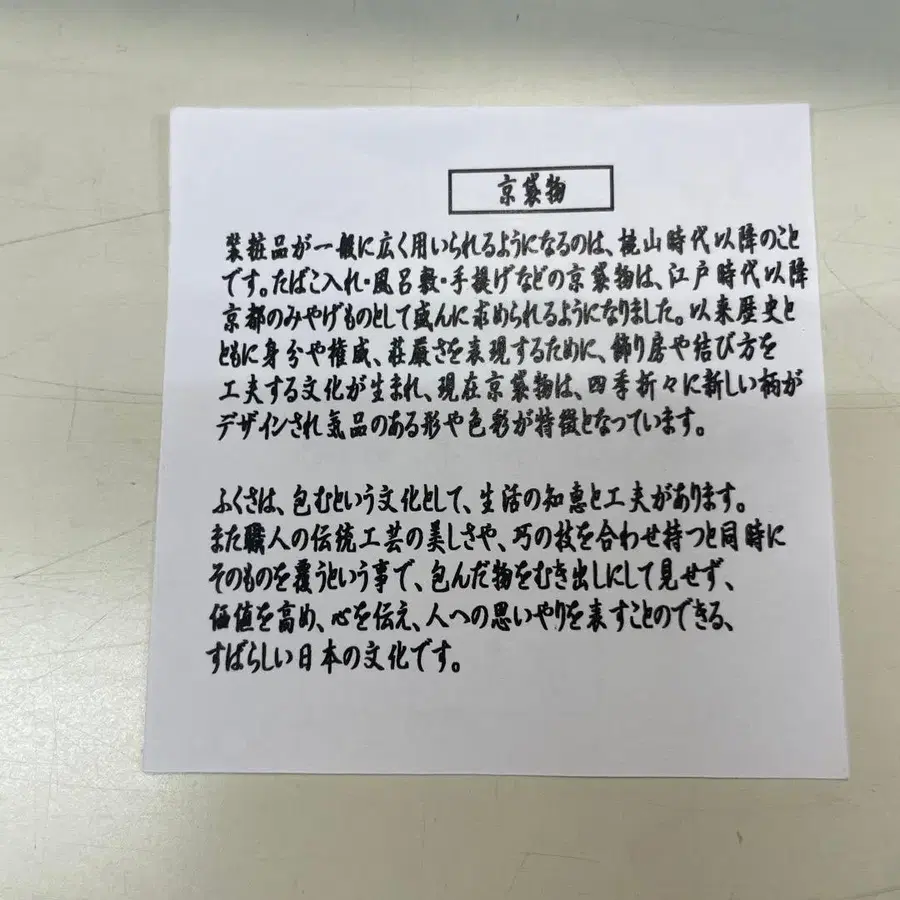 京袋物
装粧品が一般に広く用いられるようになるのは、桃山時代以降のこと
です。たばこ入れ・風呂敷・手提げなどの京袋物は、江戸時代以降
京都のみやげものとして盛んに求められるようになりました。以来歴史と
ともに身分や権威、荘厳さを表現するために、飾り房や結び方を
工夫する文化が生まれ、現在京袋物は、四季折々に新しい柄が
デザインされ気品のある形や色彩が特徴となっています。
ふくさは、包むという文化として、生活の知恵と工夫があります。
また職人の伝統工芸の美しさや、巧の技を合わせ持つと同時に
そのものを覆うという事で、包んだ物をむき出しにして見せず、
価値を高め、心を伝え、人への思いやりを表すことのできる、
すばらしい日本の文化です。